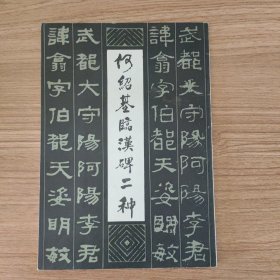 武都太守陽阿陽李君
諱翕字伯都天姿明敏
何紹基臨漢碑二种
武都大守陽阿陽李君
諱翕字伯都天姿明敏